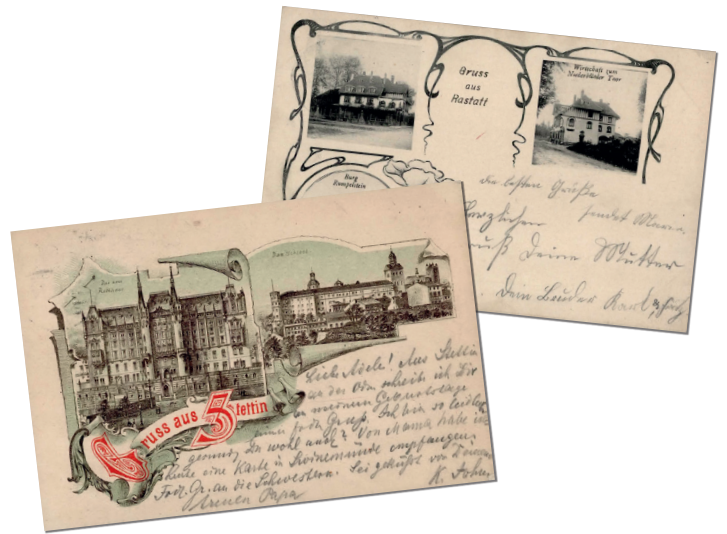 Gruss
aus
Rastatt
Wirtschaft zum
Niederbühler Thor
Burg
Rumpelstein
die besten Grüße
Herzlichen sendet
Gruß Deine Mutter
Dein Bruder Karl
Das neue
Rathhaus
Das Schloss
Gruss aus Stettin
Liebe Adele! Aus Stettin
an der Oder schreib ich Dir
an meinem Geburtstage
einen Gruß. Ich bin so leidlich
gesund, Du wohl auch? Von Mama habe ich
heute eine Karte in Swinemünde empfangen.
Gr. an die Schwestern. Sei geküßt von Deinem
Papa